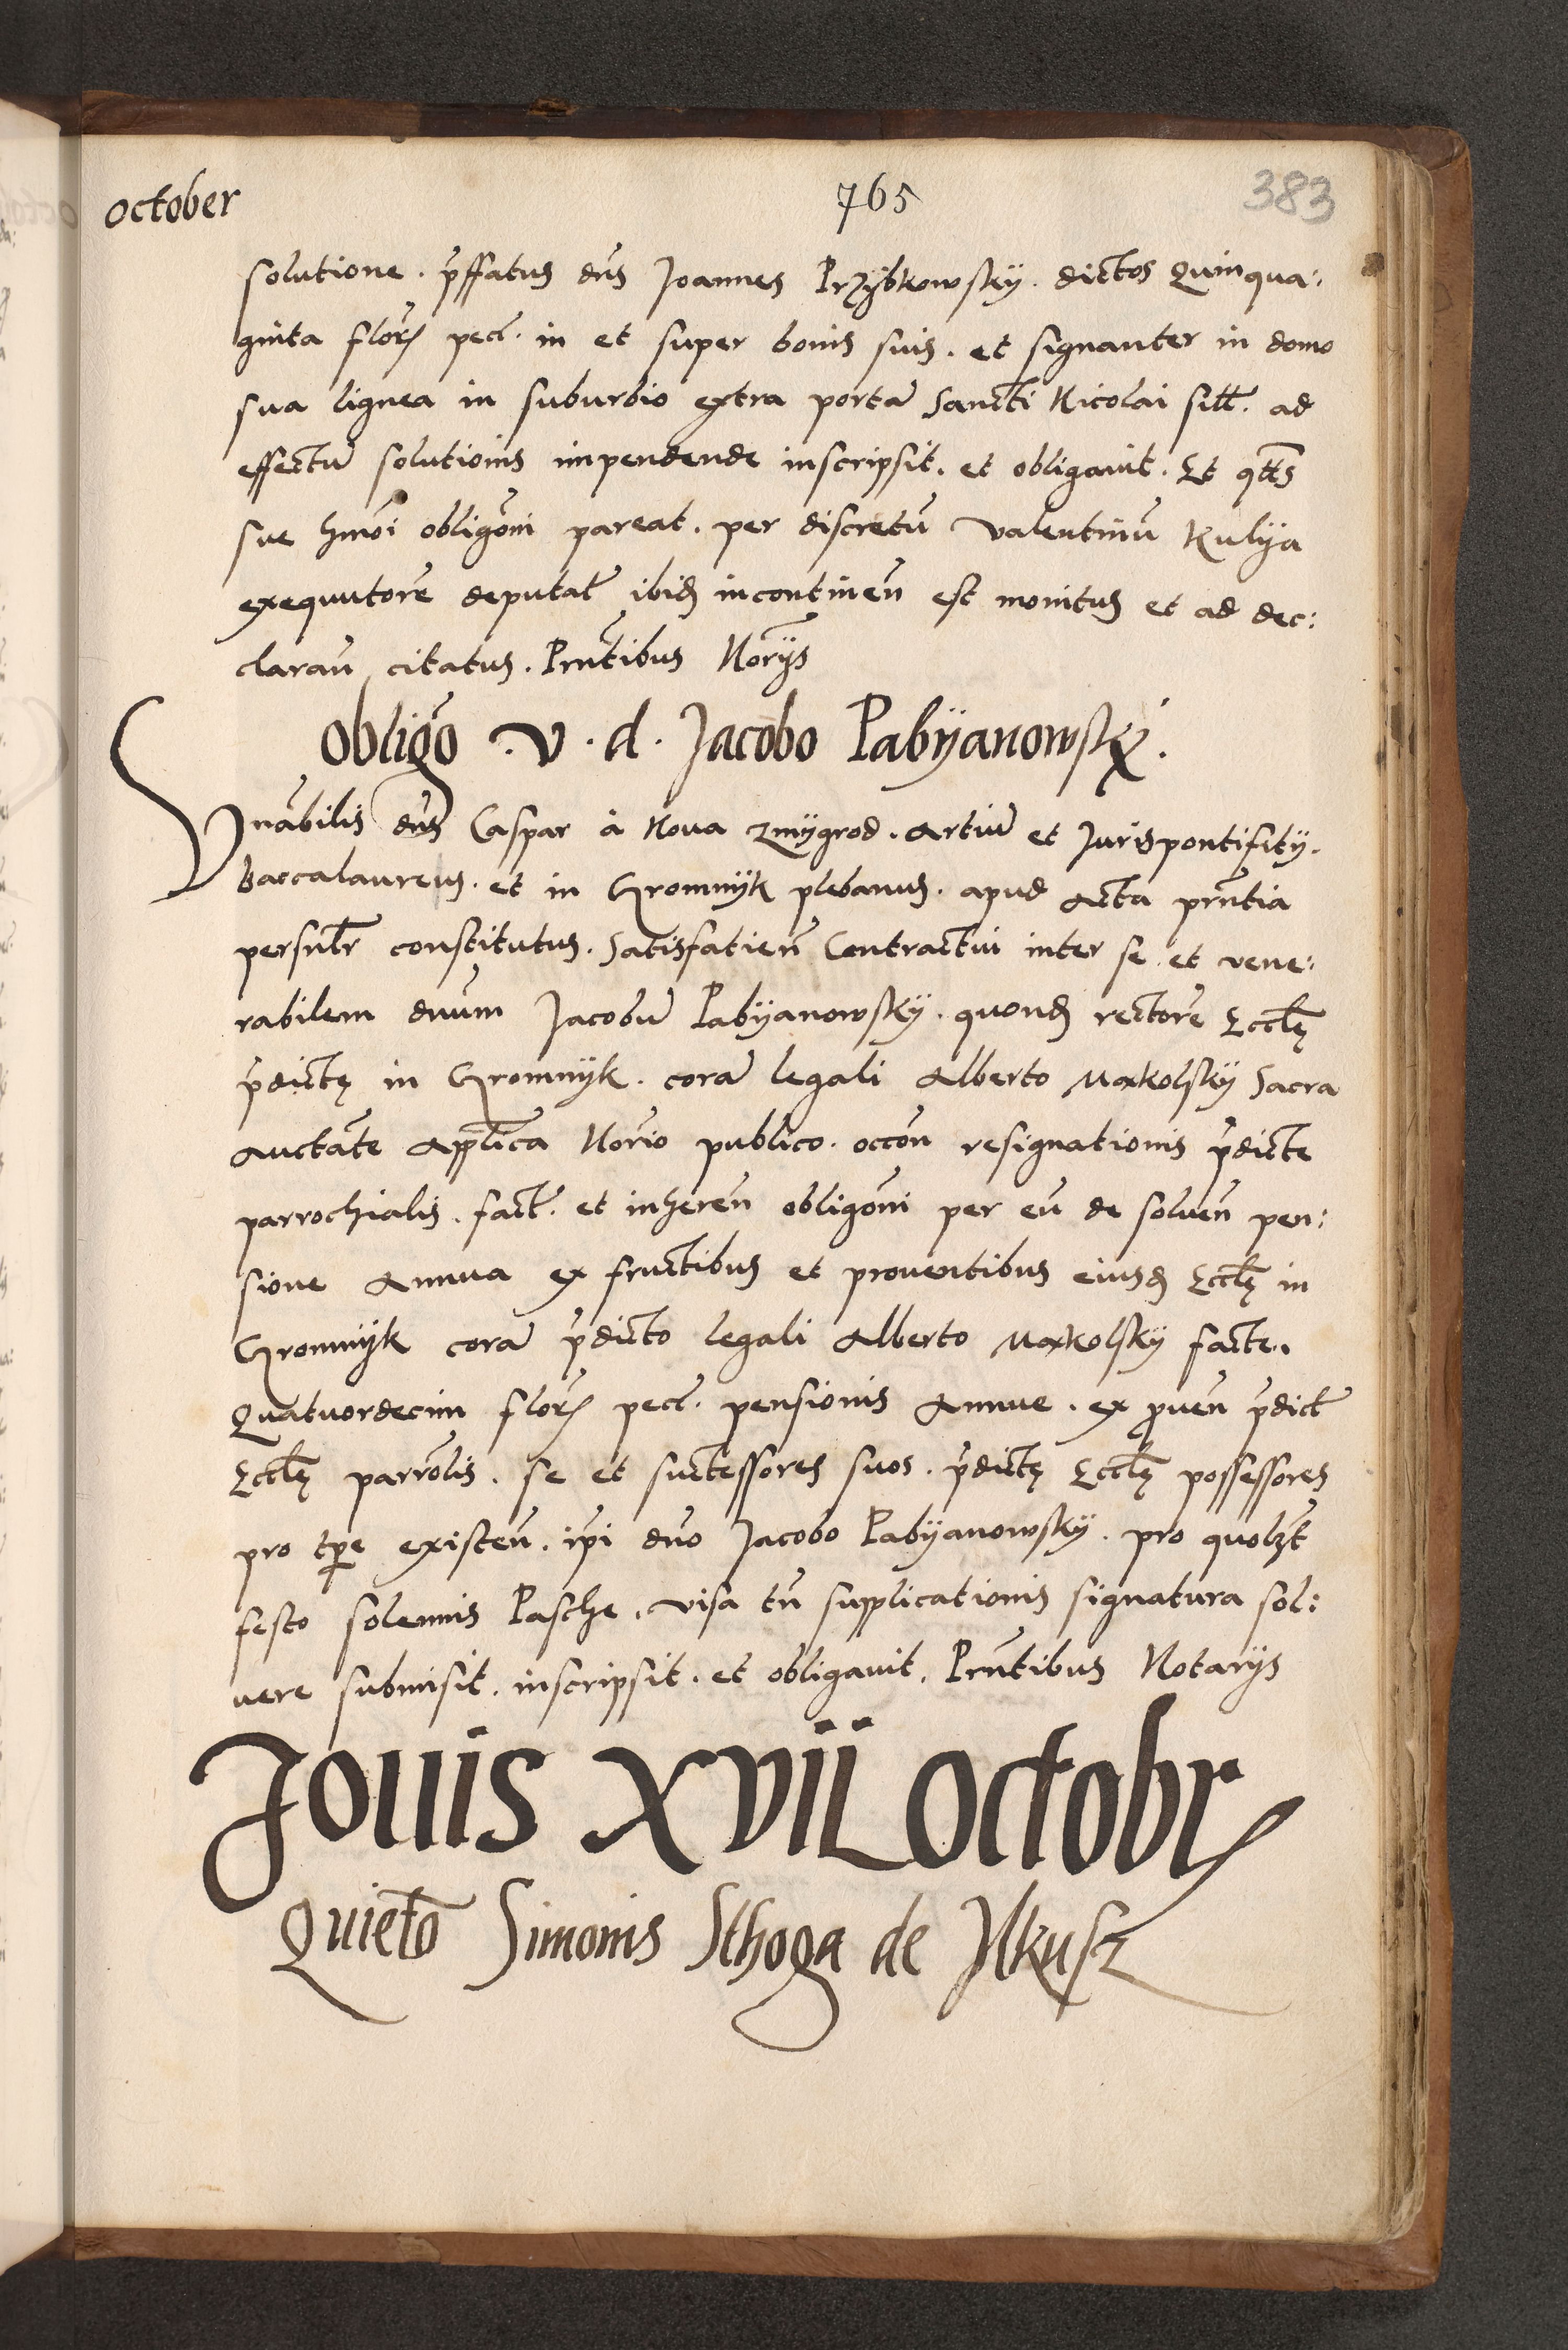 October 765 383
solutione. p̃ffatus dn̄s Joannes Przÿbkowskÿ. dictos Quinqua:
ginta flor̄ pecū. in et super bonis suis. et signanter in domo
sua lignea in suburbio extra portā Sancti Nicolai sitt̄. ad
effectū solutionis impendende inscripsit. et obligavit. Et qtt̄s
sue hm̄oi obligōni pareat. per discretū Valentinū Kulÿa
exequutorē deputat̄ ibid̄ incontinen̄ est monitus et ad dec:
claran̄ citatus. Prn̄tibus Nor̄ijs
Obligō. V. d. Jacobo Pabÿanowskÿ.
Vn̄abilis dn̄s Caspar à Nova Zmÿgrod. Artiū et Juris pontifitÿ.
Baccalaureus. et in Gromnÿk plebanus. apud Acta prn̄tia
persnlr̄ constitutus. Satisfatien̄ Contractui inter se et vene:
rabilem dnum Jacobū Pabÿanowskÿ. quond̄ rectorē Eccl̄ę
p̄dictę in Gromnÿk. corā legali Alberto Maxkolskÿ Sacra
Auctāte Applīca Nor̄io publico. occōn resignationis p̄dicte
parrochialis. fact̄. et inheren̄ obligōni per eū de solven̄ pen:
sione Annua ex fructibus et proventibus eiusd̄ Eccl̄ę in
Gromnÿk corā p̄dicto legali Alberto Maxkolskÿ facte.
Quatuordecim flor̄ pecū. pensionis Annue. ex proven̄ p̄dict̄
Eccl̄ę parrōlis. se et suctessores suos. p̄dictę Eccl̄ę possessores
pro tp̄e existen̄. ip̄i dn̄o Jacobo Pabÿanowskÿ. pro quolz̄t
festo solennis Pasche. visa tn̄ supplicationis signatura sol:
vere submisit. inscripsit. et obligavit. Prn̄tibus Notarÿs
Jovis XVII Octobr̄
Quietō Simonis Sthoga de Ilkusz